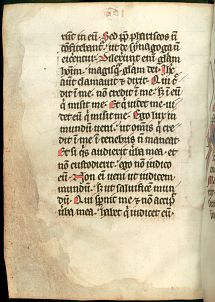 runt in eū. Sed ꝓp phariseos nō
cōfitebant᷑. ut de synagoga nō
eicerent᷑. Dilexerunt eni glam
hoīm. magisqᷓ glam dei. Ihc
aut clamauit ⁊ dixit. Qui cͥ
dit ī me. nō credit ī me. sꝫ ī eū
qͥ misit me. Et qͥ uidet me. ui
det eū qͥ misit me. Ego lux in
mundū ueni. ut om̄īs qͥ cre
dit ī me. ī tenebris nō maneat.
Et si qͥs audierit ūba mea. et
non custodierit. ego nō iudico
eū. Non eī ueni ut iudicem
mundū. sꝫ ut saluificē mun
dū. Qui spnit me ⁊ nō accipͥ
ūba mea. habet qͥ iudicet eū.